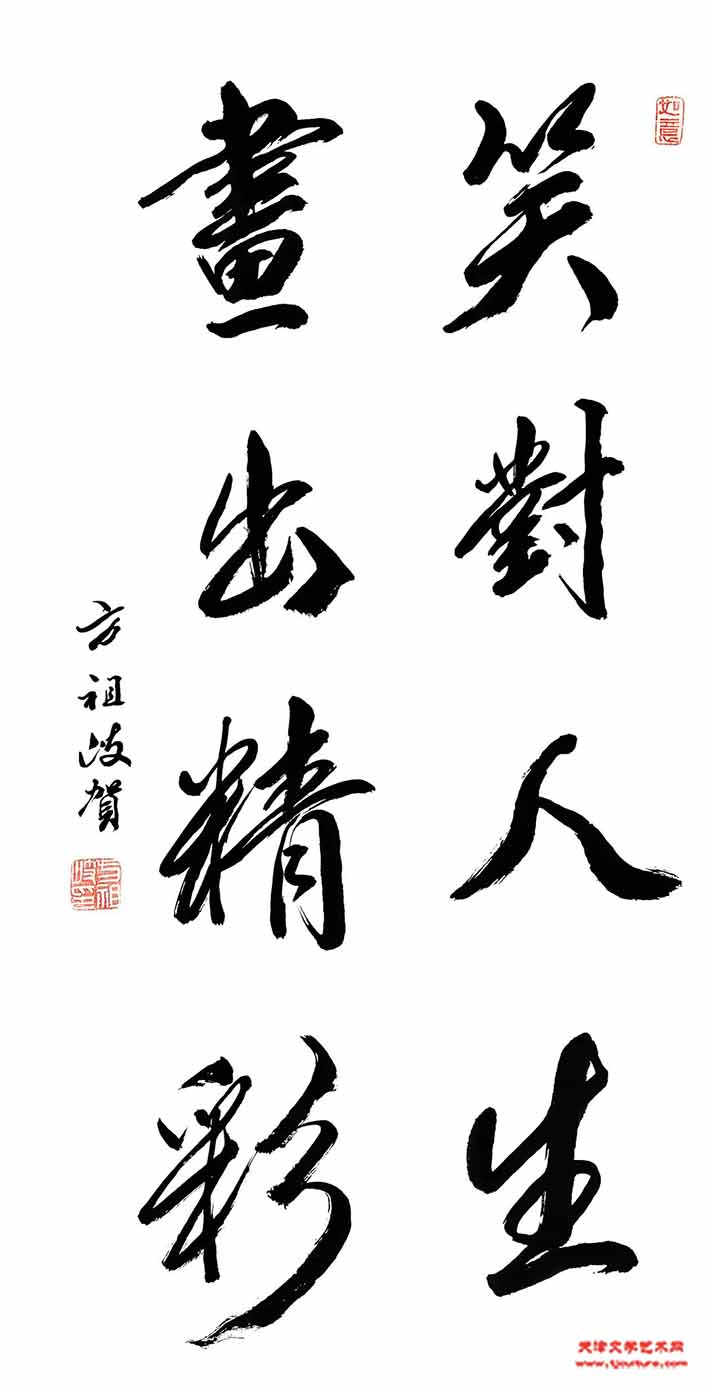 如意
笑對人生
畫出精彩
方祖岐賀
方祖岐印
天津文学艺术网
www.tjculture.com